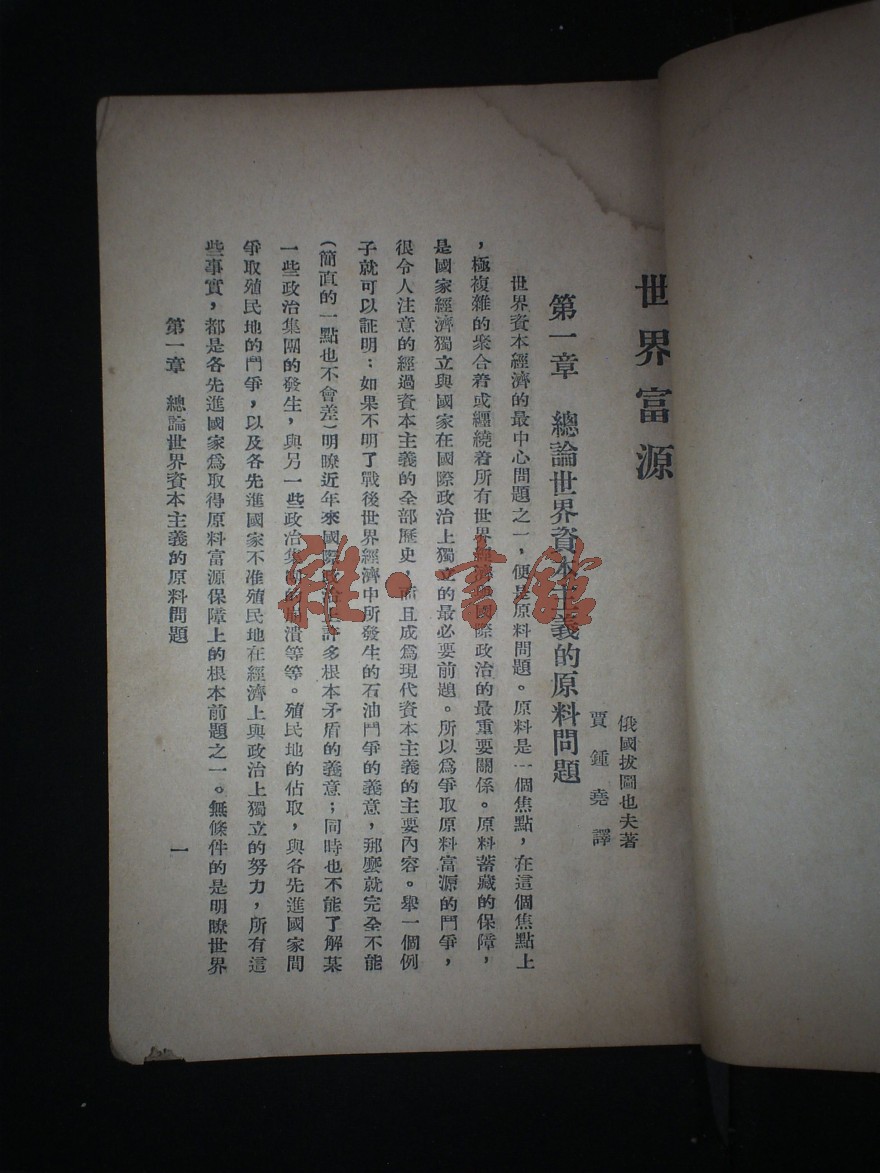 世界富源
俄國拔圖也夫著
賈鍾堯譯
第一章 總論世界資本主義的原料問題
世界資本經濟的最中心問題之一,便是原料問題。原料是一個焦點,在這個焦點上
,極複雜的衆合着或纒繞着所有世界經濟和國際政治的最重要關係。原料蓄藏的保障,
是國家經濟獨立與國家在國際政治上獨立的最必要前題。所以爲爭取原料富源的鬥爭,
很令人注意的經過資本主義的全部歷史,而且成爲現代資本主義的主要內容。舉一個例
子就可以証明:如果不明了戰後世界經濟中所發生的石油鬥爭的義意,那麼就完全不能
(簡直的一點也不會差)明瞭近年來國際政治上許多根本矛盾的義意;同時也不能了解某
一些政治集團的發生,與另一些政治集團的崩潰等等。殖民地的佔取,與各先進國家間
爭取殖民地的鬥爭,以及各先進國家不准殖民地在經濟上與政治上獨立的努力,所有這
些事實,都是各先進國家爲取得原料富源保障上的根本前題之一。無條件的是明瞭世界
第一章 總論世界資本主義的原料問題
一
雜·書館